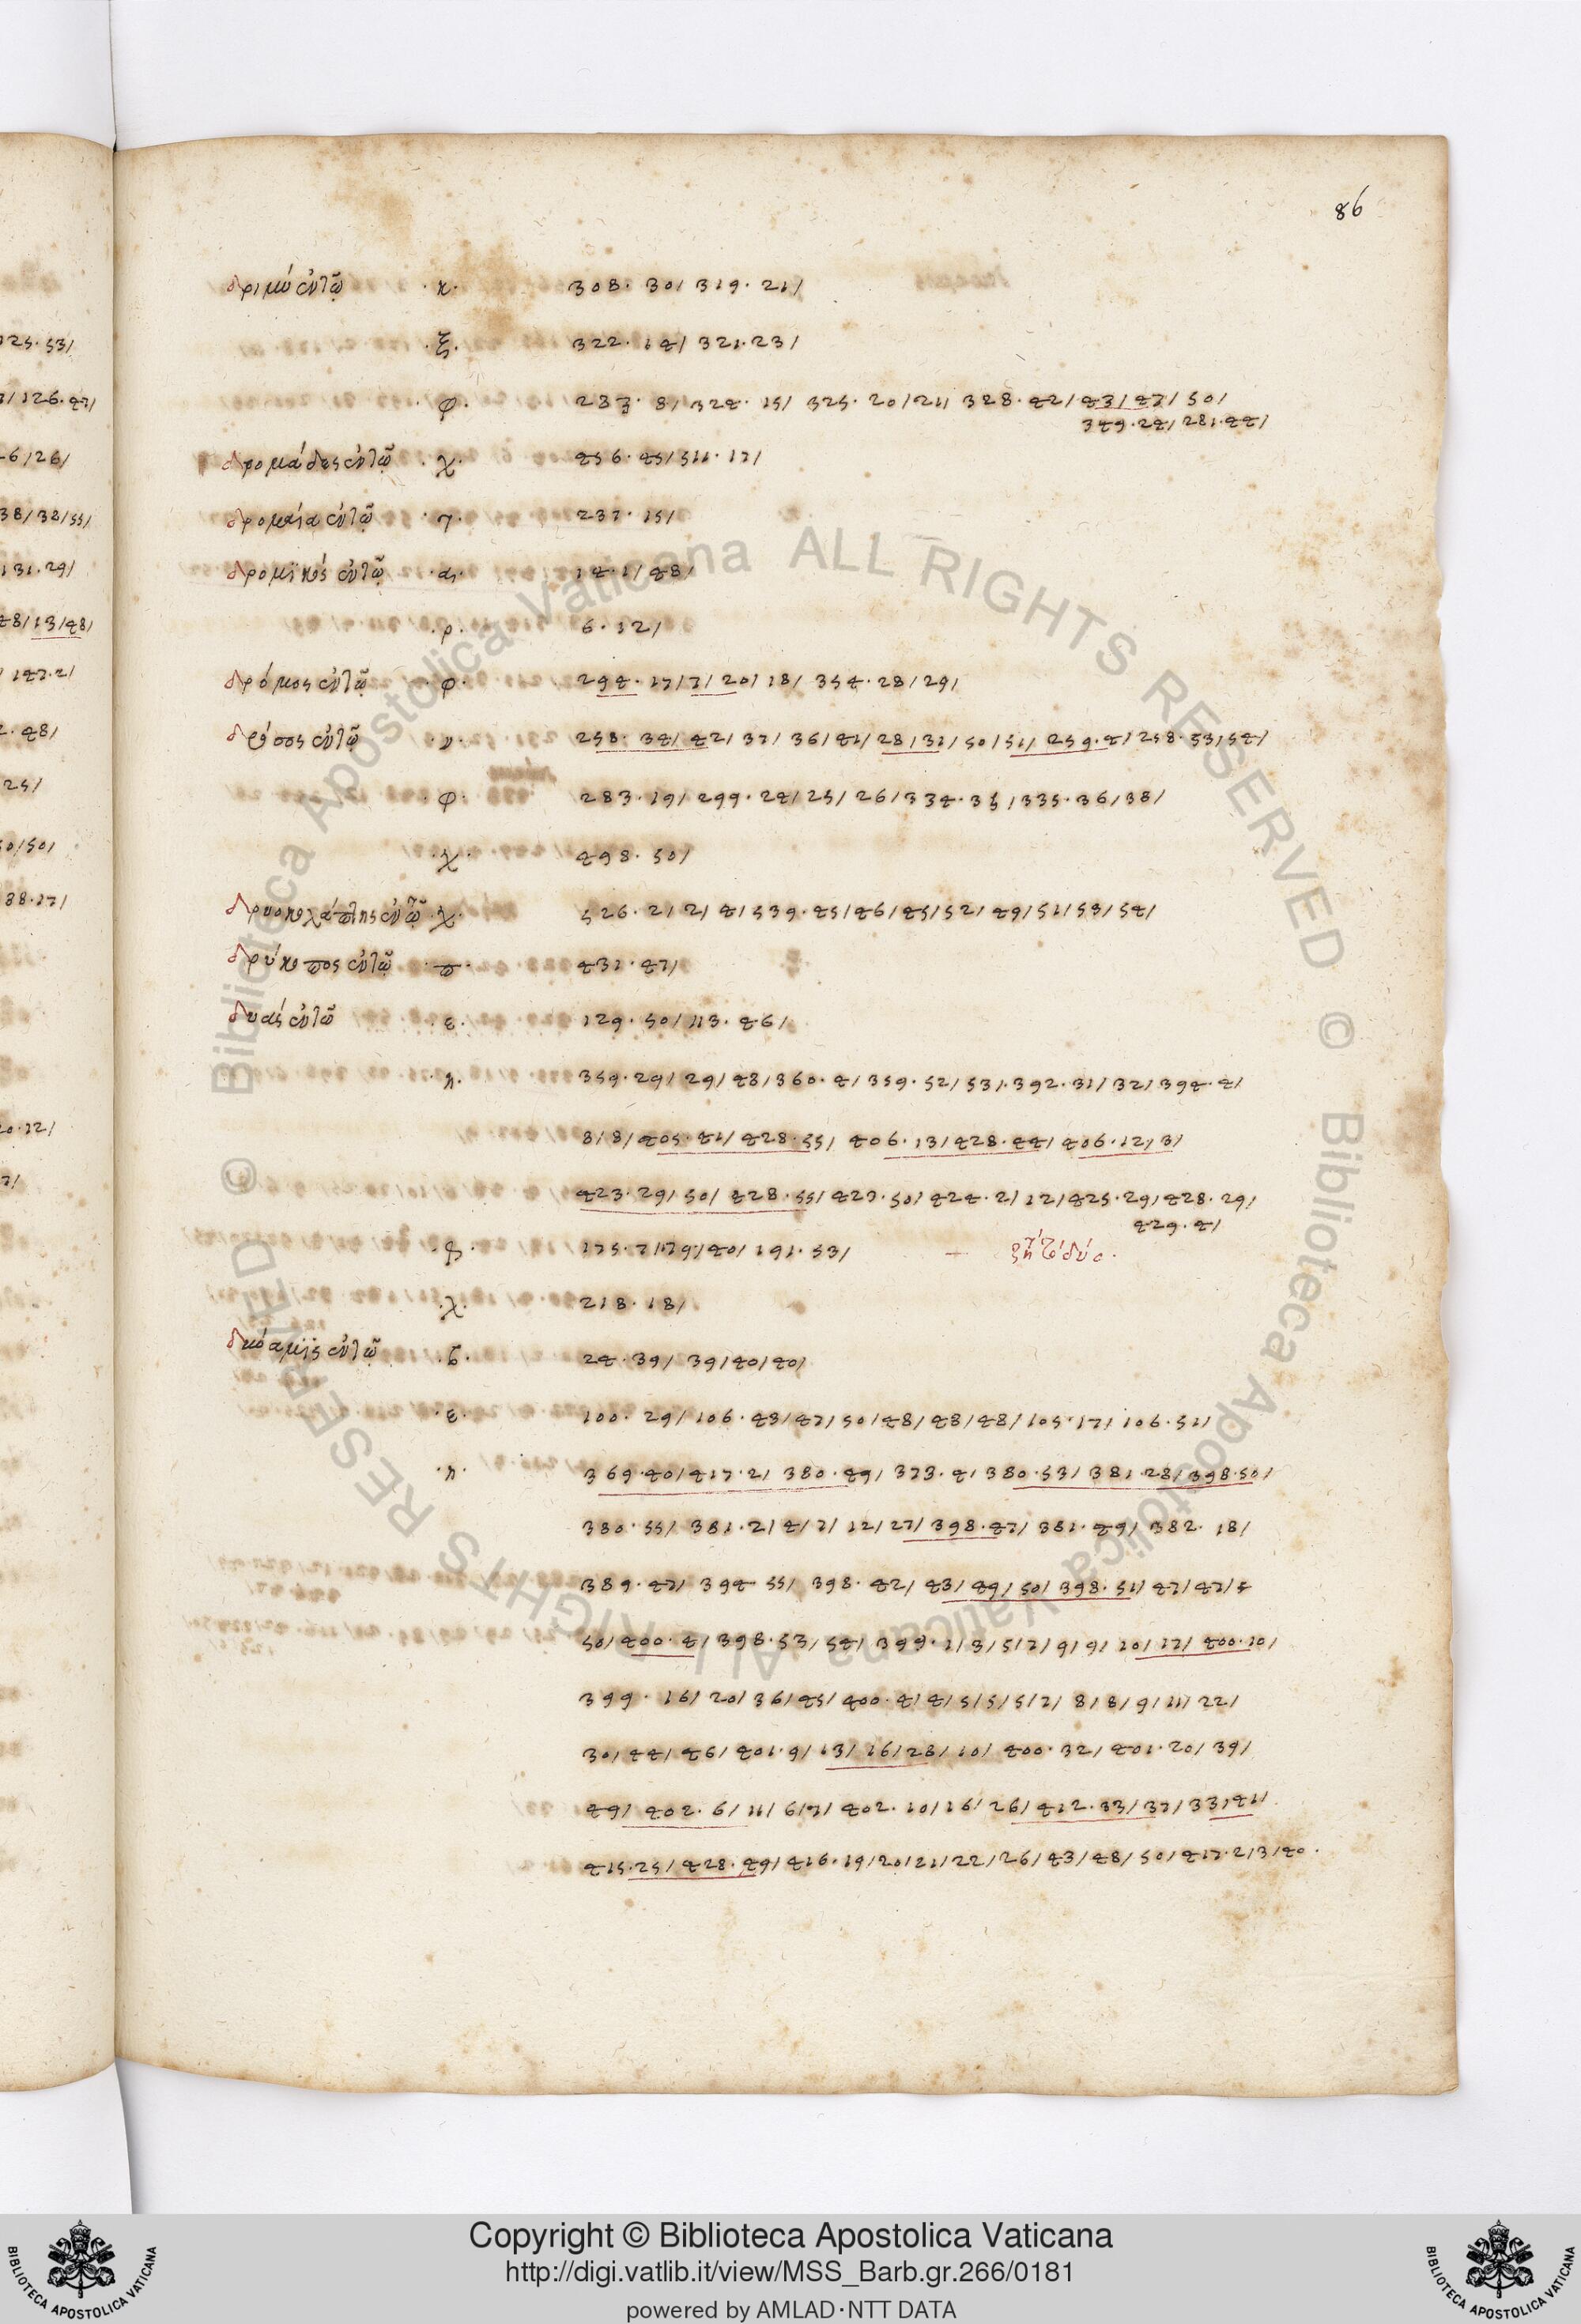 86
δριμύ ἐν τῷ ·κ· 308· 30/ 319· 21/
·ξ· 322· 14/ 321·23/
·φ· 237· 8/ 324· 15/ 325· 20/21/ 328· 42/43/47/ 50/
349·24/ 281·44/
δρομάδες ἐν τῷ ·χ· 456· 45/511· 17/
δρομαία ἐν τῷ 237· 15/
δρομικός ἐν τῷ ·α· 14·1/48/
·ρ· 6·12/
δρόμος ἐν τῷ ·φ· 294· 17/7/20/18/ 354·28/29/
δρόσος ἐν τῷ ·υ· 258· 34/ 42/ 37/ 36/41/28/31/50/51/ 259·4/258·53/54/
·φ· 283·19/299·24/25/26/334·35/335·36/38/
·χ· 498· 50/
δρυοκολάπτης ἐν τῷ ·χ· 526·2/2/4/539·45/46/45/52/49/51/53/54/
δρύκοπος ἐν τῷ ·π· 431· 47/
δυάς ἐν τῷ ·ε· 129· 50/113·46/
·η· 359·29/29/48/360·4/359·52/53/392·31/32/394·4/
8/8/405·41/428·55/ 406·13/428·44/406·12/3/
423·29/50/428·55/427·50/424·2/12/425·29/428·29/
429·4/
175·7/29/40/191·53/
·λ· 218·18/
ἐν τῷ 24·39/39/40/40/
·ε· 100· 29/106·43/47/50/48/48/48/105·17/106·51/
·η· 369·40/417·2/380·49/373·4/380·53/381·28/398·50/
380·55/381·2/4/7/12/27/398·47/381·49/382·18/
389·47/394 55/398·42/43/49/50/398·51/47/47/5
50/400·4/398·53/54/399·1/3/5/7/9/9/10/12/400·10/
399· 16/20/36/45/400·4/4/5/5/5/7/8/8/9/11/22/
30/44/46/401·9/13/16/28/10/400·32/401·20/39/
49/402·6/11/6/7/402·10/16/26/412·33/37/33/41/
415·25/428·49/416·19/20/21/22/26/43/48/50/417·2/3/40·
Copyright © Biblioteca Apostolica Vaticana
http://digi.vatlib.it/view/MSS_Barb.gr.266/0181
powered by AMLAD·NTT DATA
© Biblioteca Apostolica Vaticana ALL RIGHTS RESERVED
© Biblioteca Apostolica Vaticana ALL RIGHTS RESERVED
BIBLIOTECA APOSTOLICA VATICANA
BIBLIOTECA APOSTOLICA VATICANA